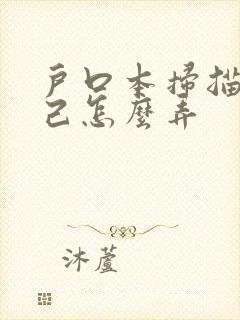 戶口本掃描
己怎麼弄
沐蘆